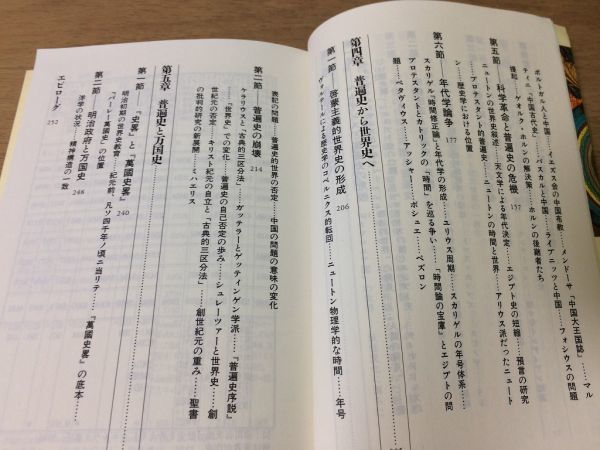 ポルトガル人と中国……イエズス会の中国布教……メンドーサ『中国大王国誌』……マル
ティニ『中国古代史』……パスカルと中国……ライプニッツと中国……フォシウスの問題
提起……ゲオルク・ホルンの解決策……ホルンの後継者たち
第五節 科学革命と普遍史の危機 157
ニュートンの世界史叙述……天文学による年代決定……エジプト史の短縮……預言の研究
……プロテスタント的普遍史……ニュートンの時間と世界……アリウス派だったニュート
ン……歴史学における位置
第六節 年代学論争 177
スカリゲル『時間修正論』と年代学の形成……ユリウス周期……スカリゲルの年号体系……
プロテスタントとカトリックの「時間」を巡る争い……『時間論の宝庫』とエジプトの問
題……ペタヴィウス……アッシャー……ボシュエ……ペズロン
第四章 普遍史から世界史へ
第一節 啓蒙主義的世界史の形成 206
ヴォルテールによる歴史学のコペルニクス的転回……ニュートン物理学的な時間……年号
表記の問題……普遍史的世界の否定……中国の問題の意味の変化
第二節 普遍史の崩壊 214
ケラリウスと「古典的三区分法」……ガッテラーとゲッティンゲン学派……『普遍史序説』
……『世界史』での変化……普遍史の自己否定の歩み……シュレーツァーと世界史……創
世紀元の否定……キリスト紀元の自立と「古典的三区分法」……創世紀元の重み……聖書
の批判的研究の新展開……ミハエリス
第五章 普遍史と万国史
第一節 『史畧』と『萬國史畧』 240
明治初期の世界史教育……紀元前、凡ソ四千年ノ頃ニ当リテ……『萬國史畧』の底本……
『パーレー萬國史』の位置
第二節 明治政府と万国史 248
洋学の状況……精神構造の一致
エピローグ 252